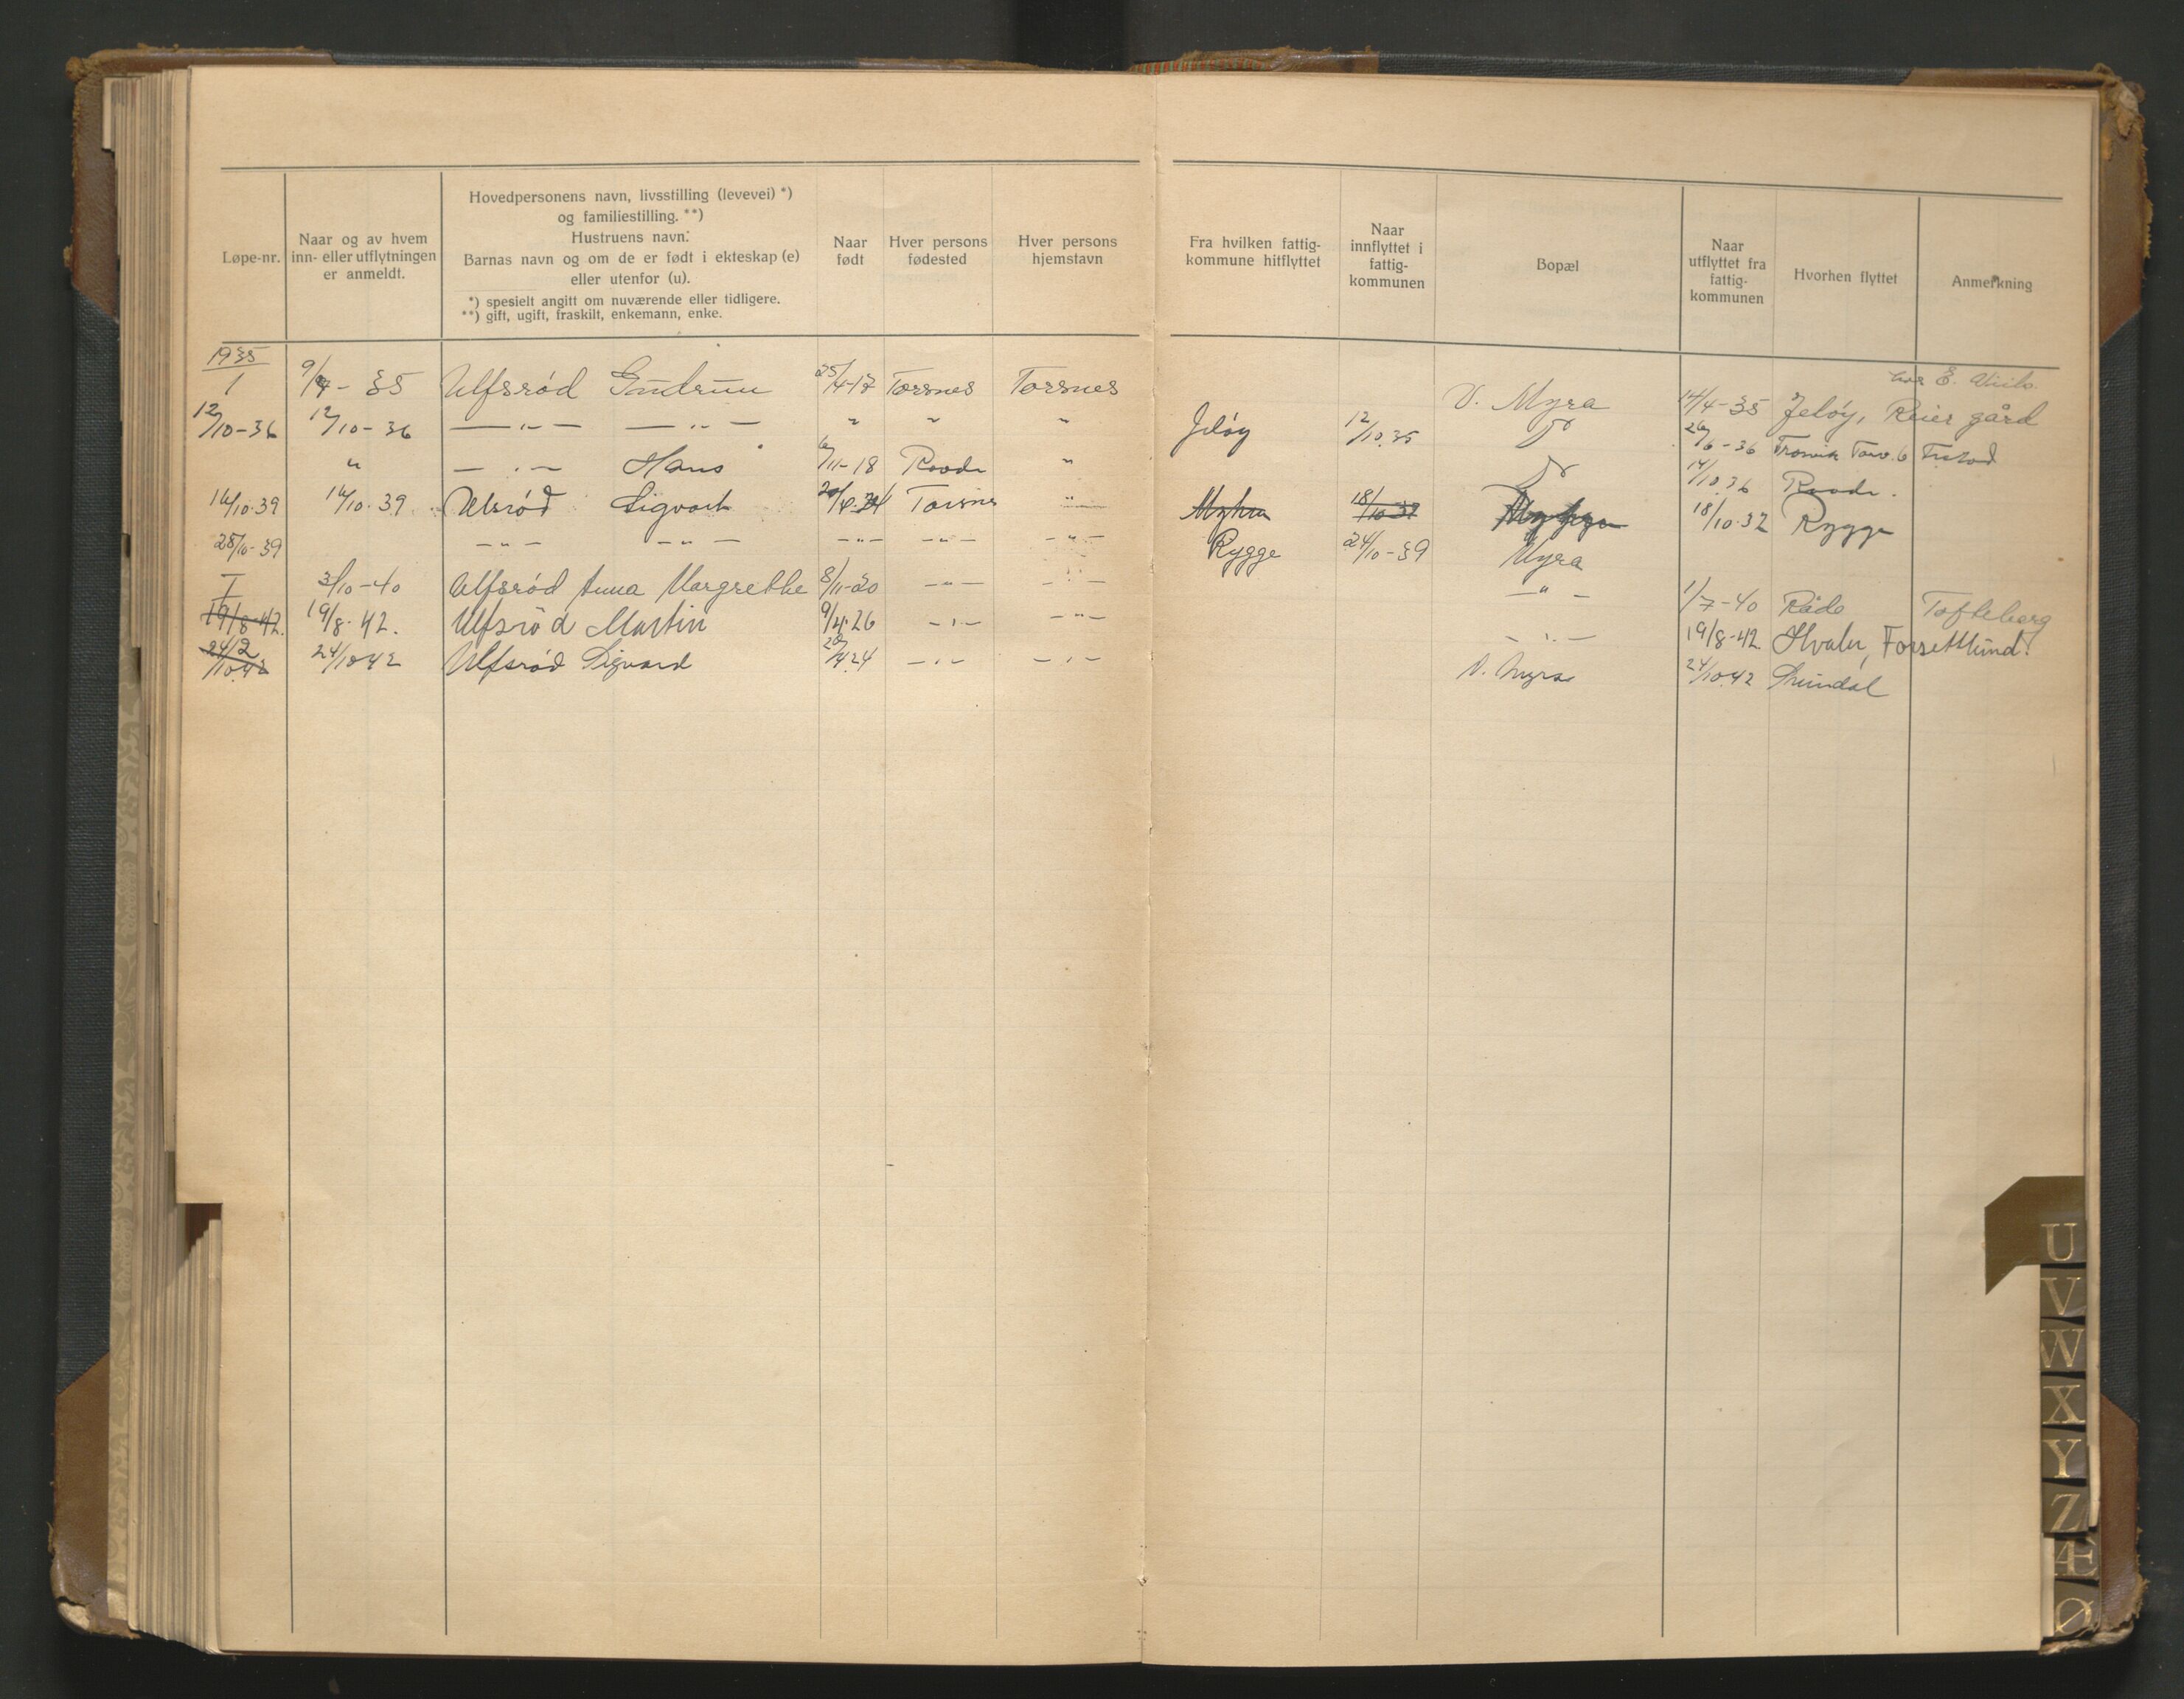 Løpe-nr.
Naar og av hvem inn- eller utflytningen er anmeldt.
Hovedpersonens navn, livsstilling (levevei) *)
og familiestilling. **)
Hustruens navn.
Barnas navn og om de er født i ekteskap (e)
eller utenfor (u).
*) spesielt angitt om nuværende eller tidligere.
**) gift, ugift, fraskilt, enkemann, enke.
Naar født
Hver persons fødested
Hver persons hjemstavn
Fra hvilken fattig-kommune hitflyttet
Naar innflyttet i fattig-kommunen
Bopæl
Naar utflyttet fra fattig-kommunen
Hvorhen flyttet
Anmerkning
1935
1 9/4-35 Ulfsrød Gudrun 25/4-17 Torsnes Torsnes V. Myra 14/4-35 Jeløy, Reier gård hos E.
12/10-36 12/10-36 — „ — — „ — „ „ „ Jeløy 12/10.35 26/6-36 Torv. 6
„ — „ — Hans 6/11-18 Raade „ 14/10.36 Raade.
14/10.39 14/10.39 Ulsrød Sigvart 20/4.24 Torsnes „ 18/10-37 18/10.37 Rygge
25/10-39 — „ — — „ — — „ — — „ — — „ — Rygge 24/10-39 Myra
I 3/10-40 Ulfsrød Anna Margrethe 8/11-20 — „ — — „ — — „ — 1/7-40 Råde Tofteberg
19/8-42. 19/8-42. Ulfsrød Martin 9/4-26 — „ — — „ — — „ — 19/8-42 Hvaler, Forsetlund.
24/10.42 24/10 42 Ulfsrød Sigvard 20/4.24 — „ — — „ — V. Myra 24/10.42
U
V
W
X
Y
Z
Æ
Ø